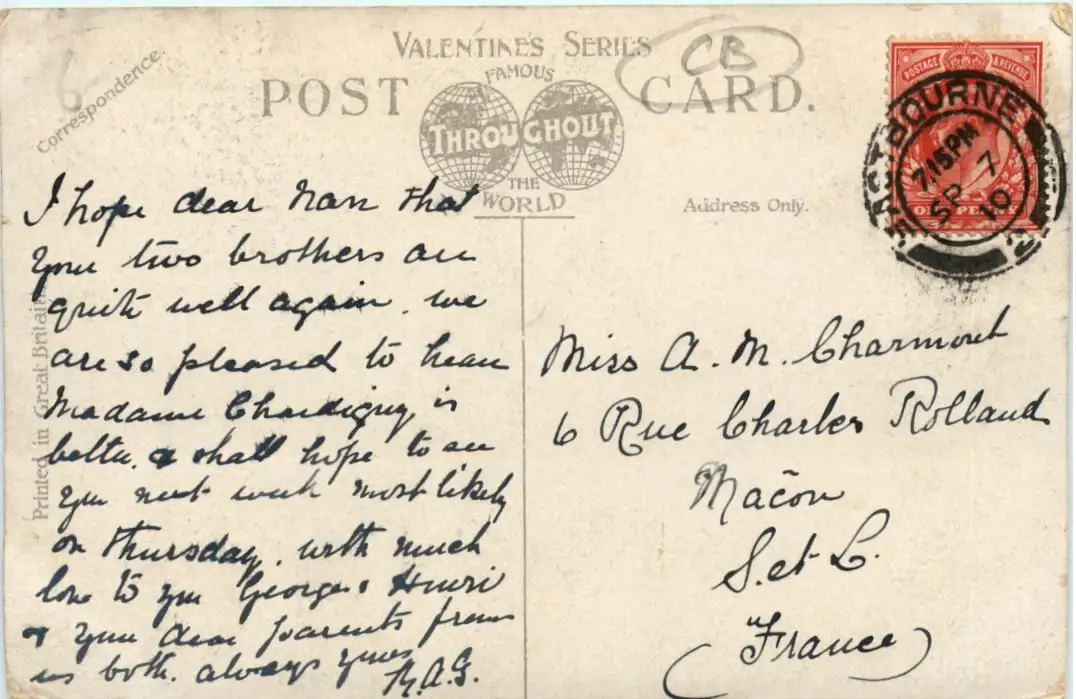 VALENTINE'S SERIES
CB
6
Correspondence.
POST CARD.
FAMOUS
THROUGHOUT
THE
WORLD
Address Only.
POSTAGE & REVENUE
ONE PENNY
EASTBOURNE
7.15 PM
SP 7
10
Printed in Great Britain
I hope dear Nan that
your two brothers are
quite well again. we
are so pleased to hear
Madame Chardigny is
better. & shall hope to see
you next week most likely
on Thursday. with much
love to you George & Henri
& your dear parents from
us both. always yours
A.G.
Miss A. M. Charmont
6 Rue Charles Rolland
Mâcon
S. et L.
(France)